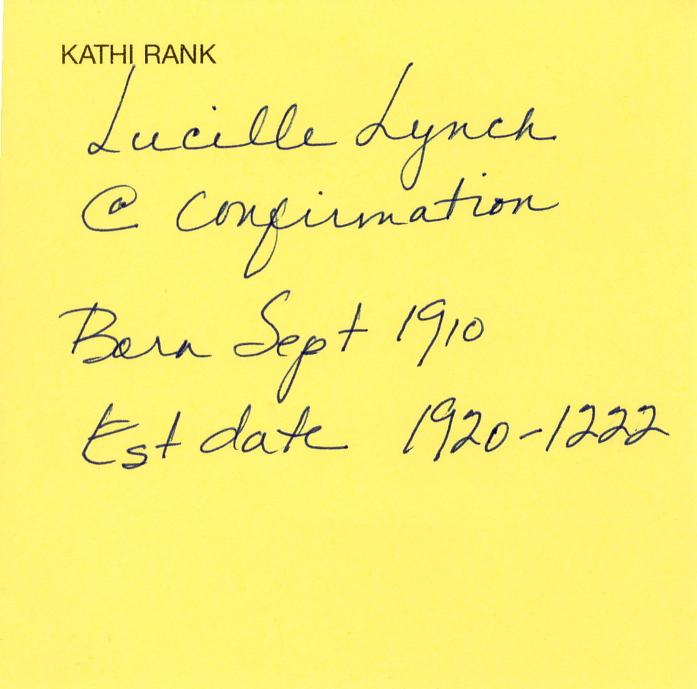 KATHI RANK
Lucille Lynch
@ Confirmation
Born Sept 1910
Est date 1920-1222